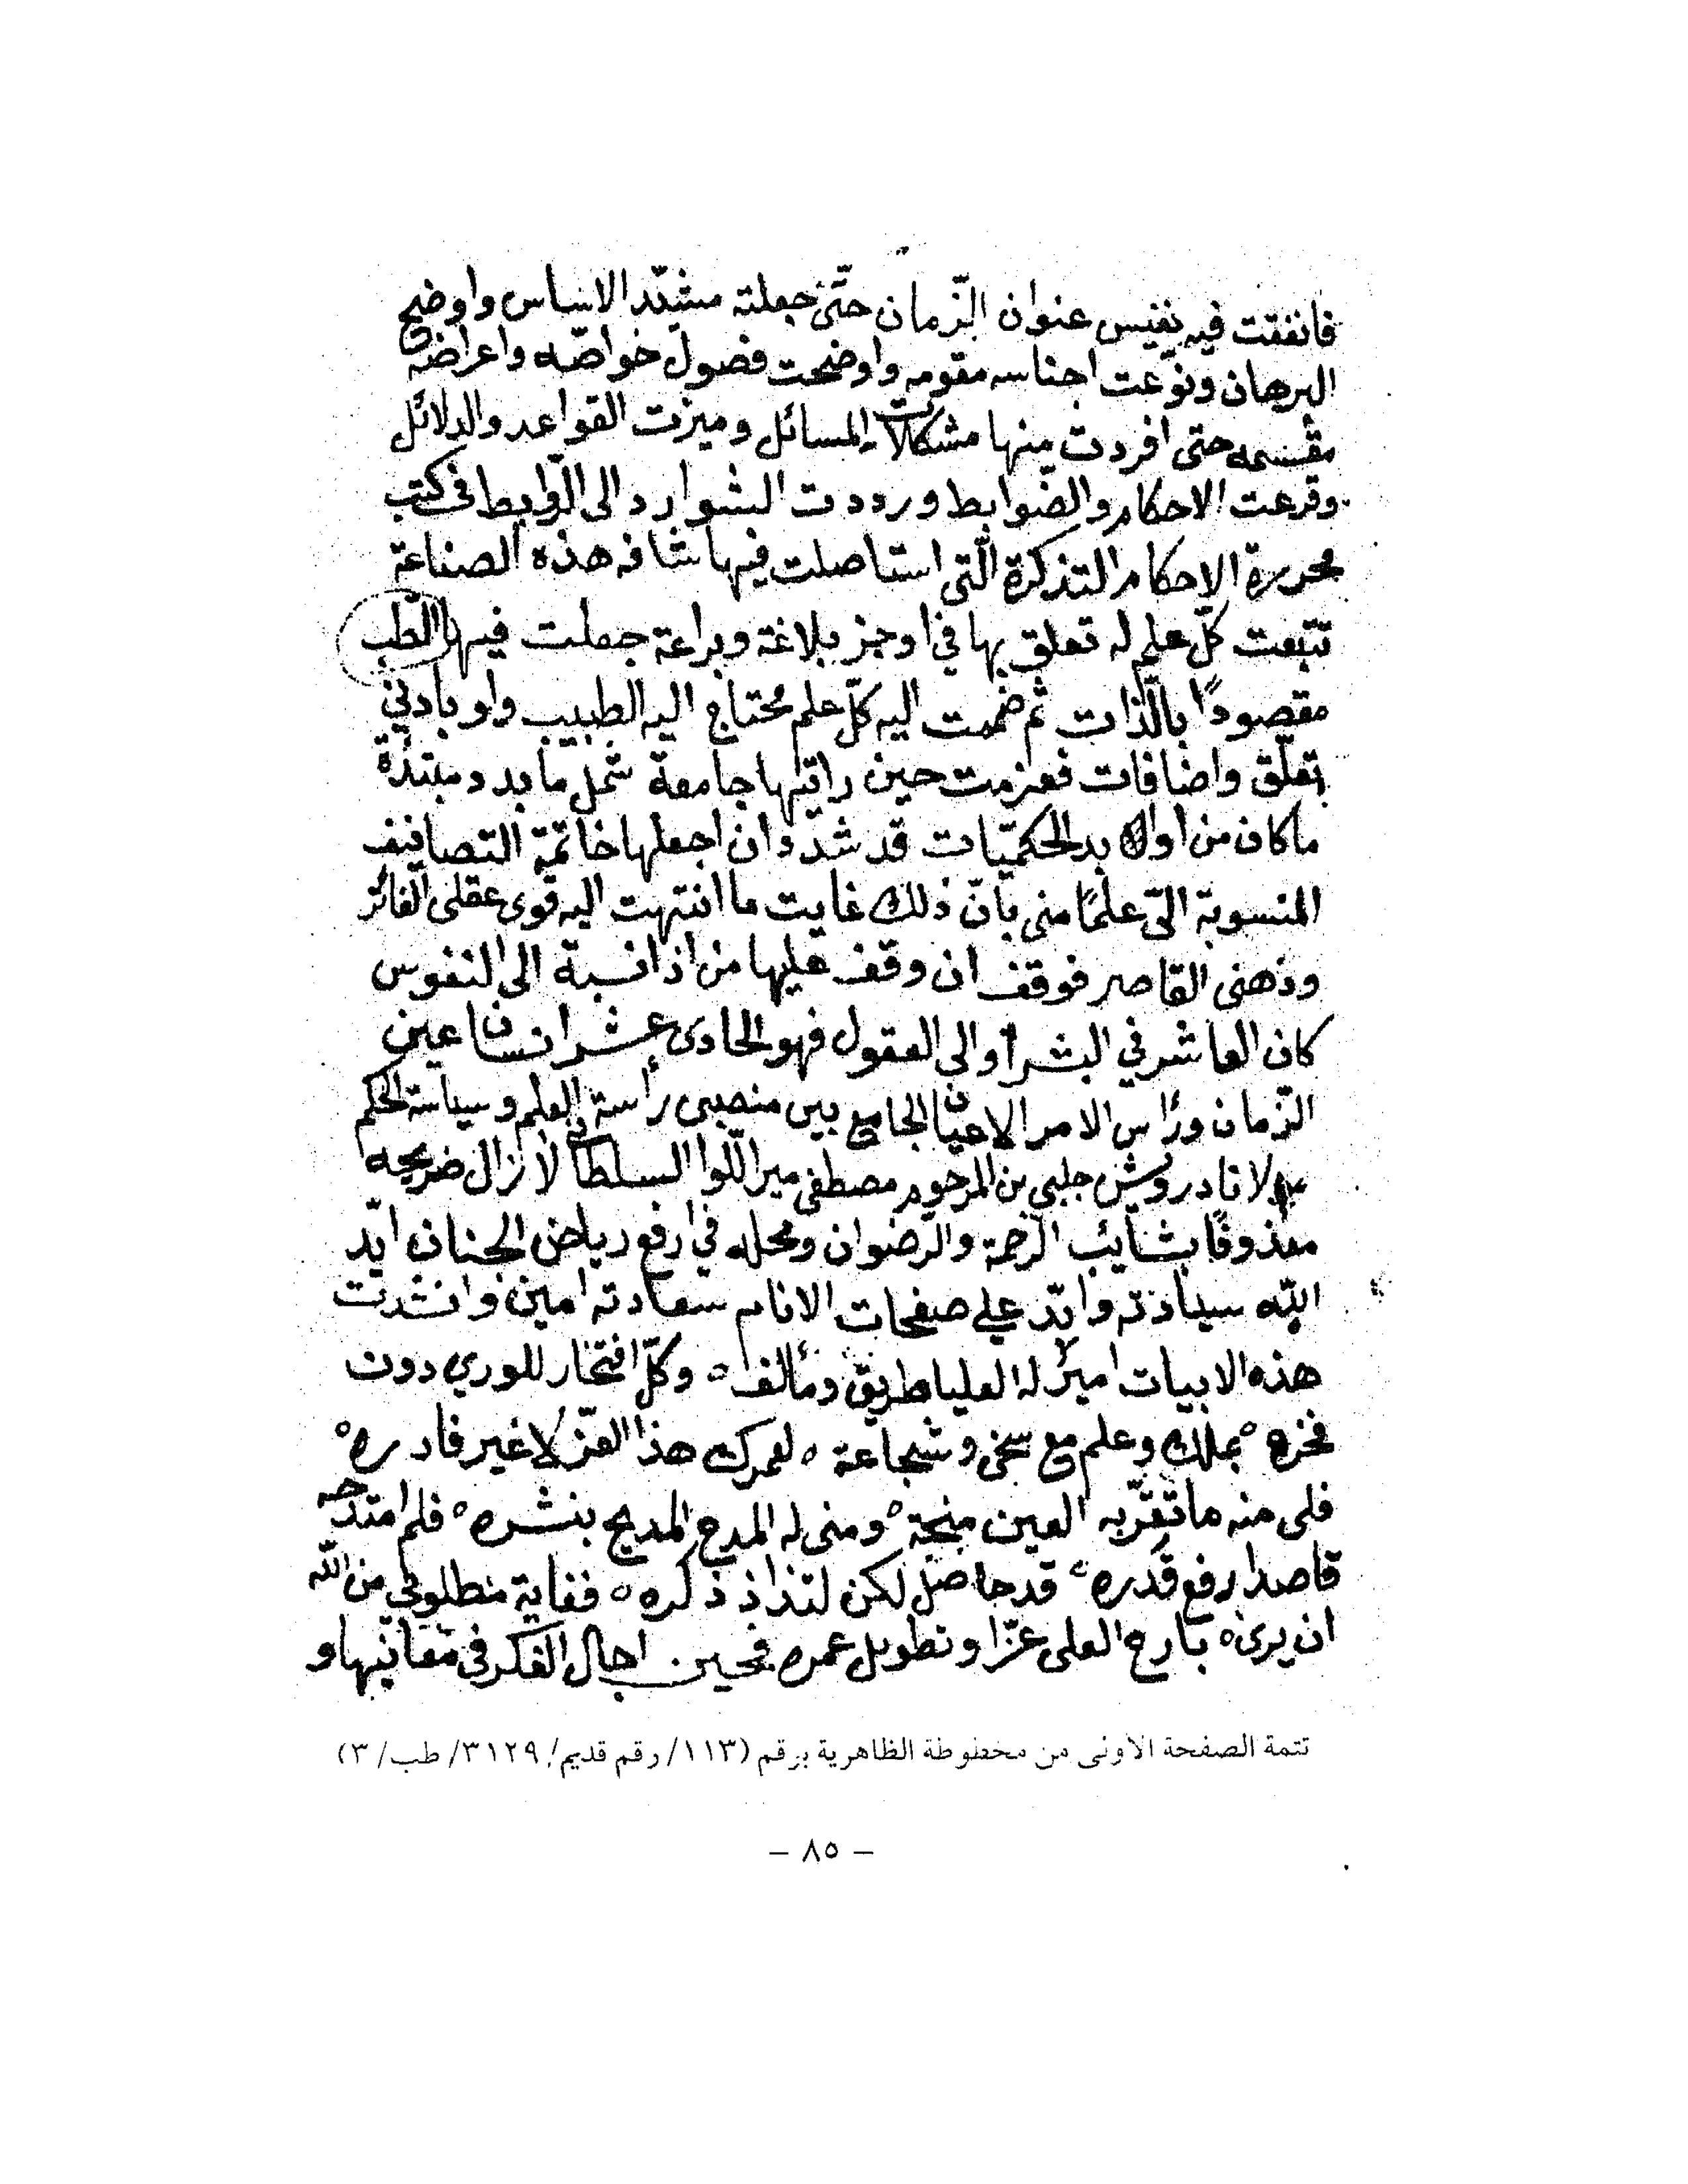 فانفقت فيه نفيس عنوان الزّمان حتّى جعلته مشيّد الاساس واوضح
البرهان ونوّعت اجناسه مقومه واوضحت فصول خواصّه واعراضه
مقسمه حتى افردت منها مشكلات المسائل وميزت القواعد والدلائل
وفرعت الاحكام والضوابط ورددت الشوارد الى الروابط في كتب
محررة الاحكام التذكرة الّتى استاصلت فيها شافه هذه الصناعة
تتبعت كلّ علم له تعلق بها في اوجز بلاغة وبراعة جعلت فيها الطب
مقصودًا بالذات ثم ضممت اليه كلّ علم محتاج اليه الطبيب ولو بادني
تعلّق واضافات فعزمت حين رايتها جامعة شمل ما بدد ومبتدئة
ما كان من اوابد الحكميّات قد شدد ان اجعلها خاتمة التصانيف
المنسوبة الىّ علمًا منى بانّ ذلك غايت ما انتهت اليه قوى عقلى الفاتر
وذهنى القاصر فوقف ان وقف عليها من اذا نسبة الى النفوس
كان العاشر في البشر أو الى العقول فهو الحادى عشر انسان عين
الزّمان ورأس الامر الاعيان الجامع بين منصبى رأسة العلم وسياسة الحكم
مولانا درويش جلبي بن المرحوم مصطفى مير اللّوا السلطاني لا زال ضريحه
مغذوقًا بشآئب الرحمة والرضوان ومحله في ارفع رياض الجنان ايّد
الله سيادته وابّد على صفحات الانام سعادته امين وانشدت
هذه الابيات اميرٌ له العليا طريق ومألف ° وكلّ افتخار للوري دون
فخره ° بملك وعلم مع سخى وشجاعة ° لعمرك هذا العزّ لا غير فادره °
فلى منه ما تقرّ به العين منحة ° ومنى له المدح المديح بنشره ° فلم امتدحه
قاصدا رفع قدره ° قد حاصل لكن لتذاذ ذكره ° فغاية مطلوبي من الله
ان يرى ° بارج العلى عزّا وتطويل عمره فحين اجال الفكر في معانيها و
تتمة الصفحة الأولى من مخطوطة الظاهرية برقم (١١٣/ رقم قديم/ ٣١٢٩/ طب/ ٣)
– ٨٥ –